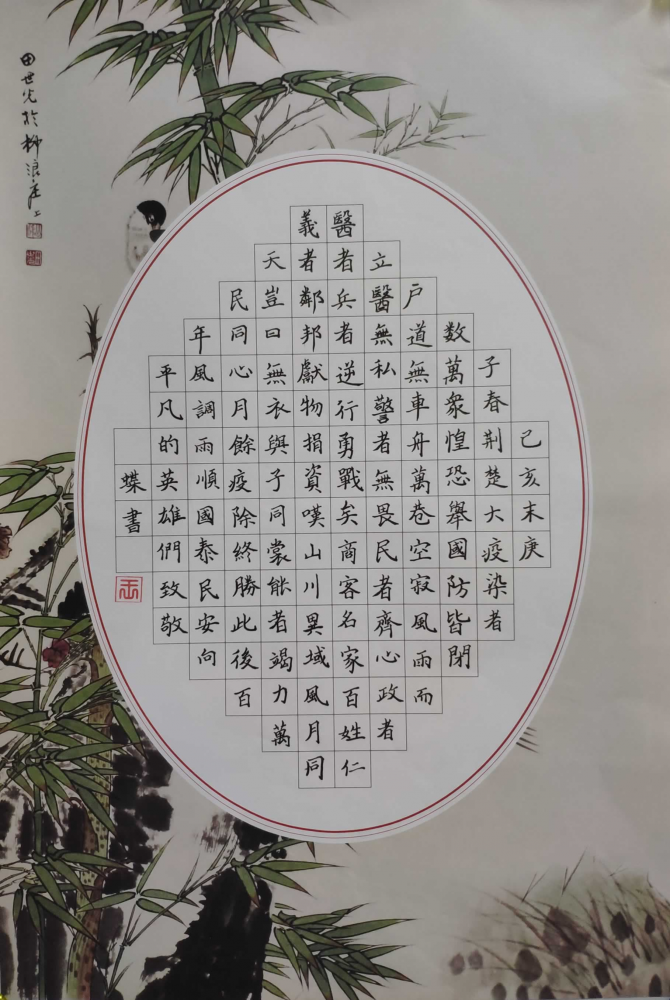 己亥末庚
子春荆楚大疫染者
数萬衆惶恐舉國防皆閉
户道無車舟萬巷空寂風雨而
立醫無私警者無畏民者齊心政者
醫者兵者逆行勇戰矣商客名家百姓仁
義者鄰邦獻物捐資嘆山川異域風月同
天豈曰無衣與子同裳能者竭力萬
民同心月餘疫除終勝此後百
年風調雨順國泰民安向
平凡的英雄們致敬
蝶書
田世光於柳浪庄上